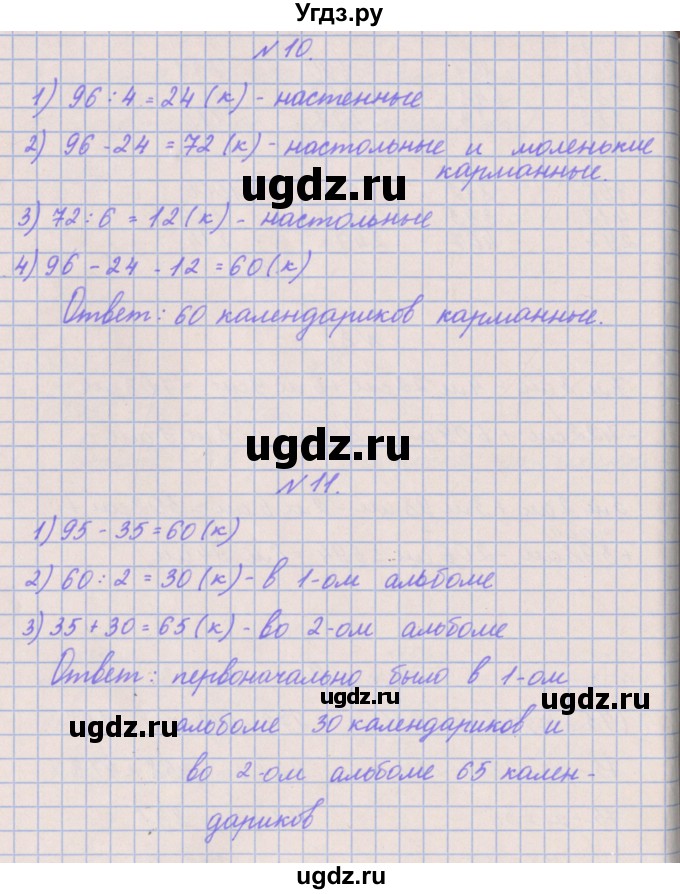 Угдз.ру
№10.
1) 96 : 4 = 24 (к) - настенные
2) 96 - 24 = 72 (к) - настольные и моленькие
карманные.
ugdz.ru
3) 72 : 6 = 12 (к) - настольные
4) 96 - 24 - 12 = 60 (к)
Ответ: 60 календариков карманные.
ugdz.ru
№11.
1) 95 - 35 = 60 (к)
2) 60 : 2 = 30 (к) - в 1-ом альбоме
3) 35 + 30 = 65 (к) - во 2-ом альбоме
Ответ: первоначально было в 1-ом
ugdz.ru
ugdz.ru
ugdz.ru
альбоме 30 календариков и
во 2-ом альбоме 65 кален-
дариков
ugdz.ru
ugdz.ru